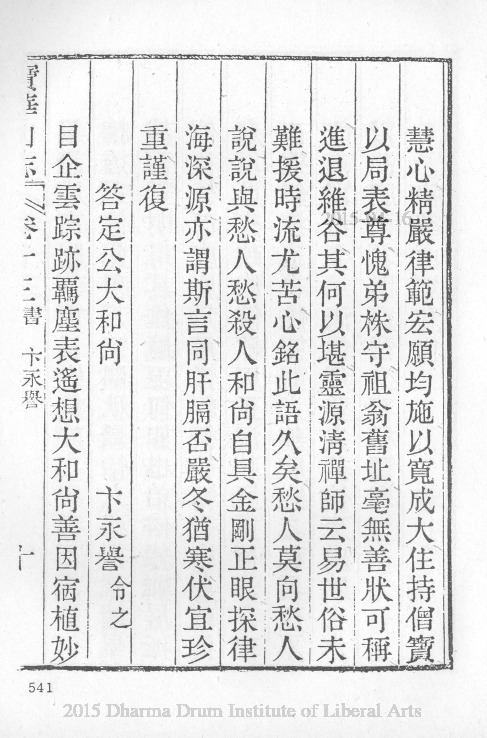 慧心精嚴律範宏願均施以寬成大住持僧寶
以局表尊愧弟株守祖翁舊址毫無善狀可稱
進退維谷其何以堪靈源淸禪師云易世俗未
難援時流尤苦心銘此語久矣愁人莫向愁人
說說與愁人愁殺人和尚自具金剛正眼探律
海深源亦謂斯言同肝膈否嚴冬猶寒伏宜珍
重謹復
答定公大和尚 卞永譽 令之
目企雲踪跡覊塵表遙想大和尚善因宿植妙
寶華山志 卷十三 書 卞永譽 十
541
2015 Dharma Drum Institute of Liberal Arts